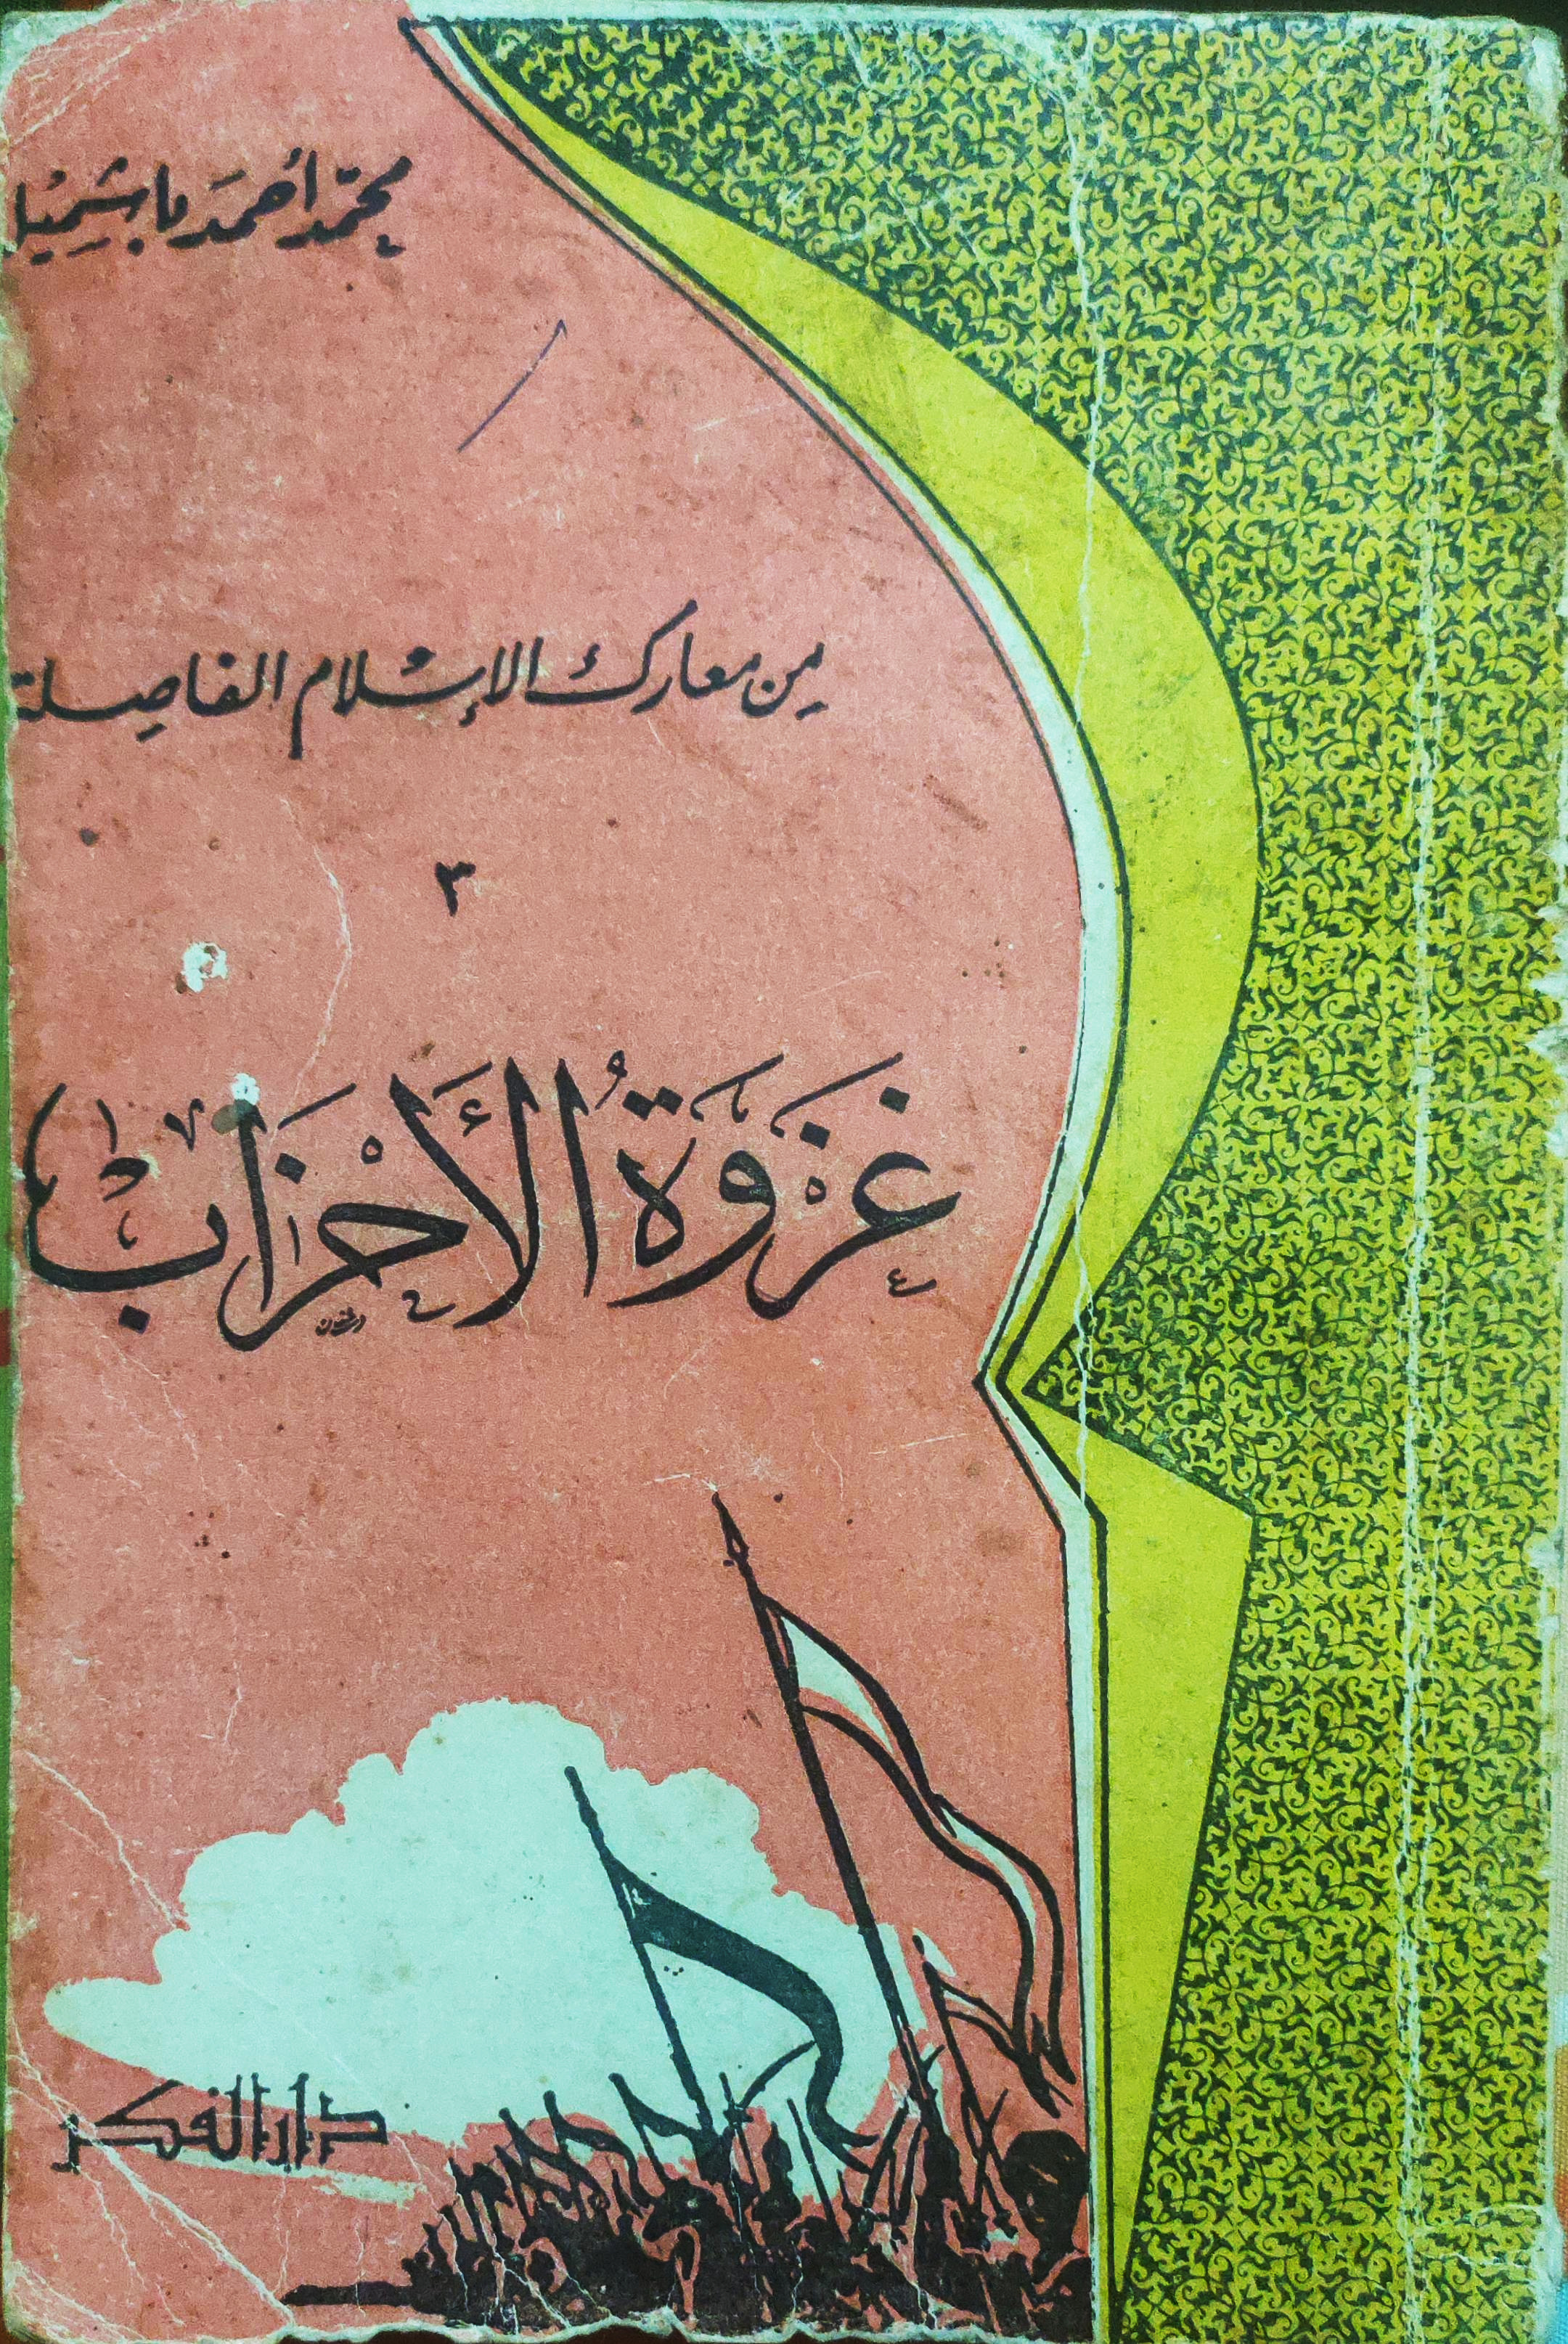 محمّد أحمَد باشميل
من معارك الإسلام الفاصلة
٣
غَزْوَةُ الأَحْزَاب
دار الفكر